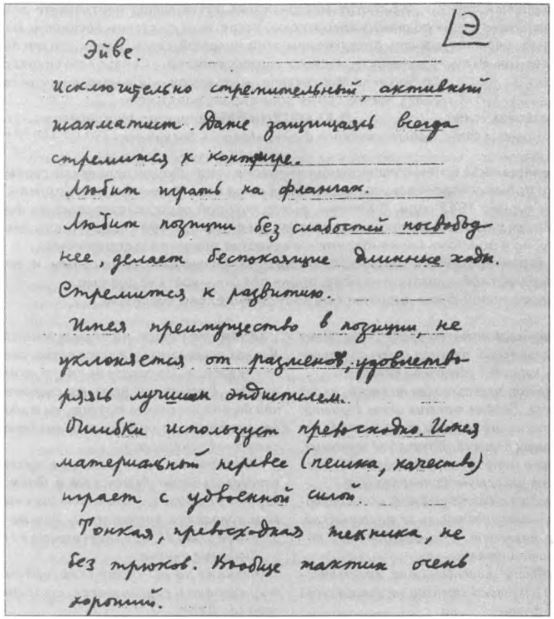 1Э
Эйве
Исключительно стремительный, активный
шахматист. Даже защищаясь всегда
стремится к контригре.
Любит играть на флангах.
Любит позиции без слабостей посвобод-
нее, делает беспокоящие длинные ходы.
Стремится к развитию.
Имея преимущество в позиции не
уклоняется от разменов, удовлетво-
ряясь лучшим эндшпилем.
Ошибки использует превосходно. Имея
материальный перевес (пешка, качество)
играет с удвоенной силой.
Тонкая, превосходная техника, не
без трюков. Вообще тактик очень
хороший.